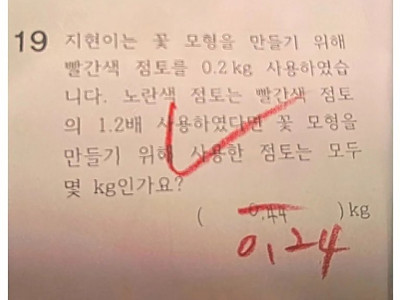 19 지현이는 꽃 모형을 만들기 위해
빨간색 점토를 0.2 kg 사용하였습
니다. 노란색 점토는 빨간색 점토
의 1.2배 사용하였다면 꽃 모형을
만들기 위해 사용한 점토는 모두
몇 kg인가요?
( 0.44 ) kg
0.24